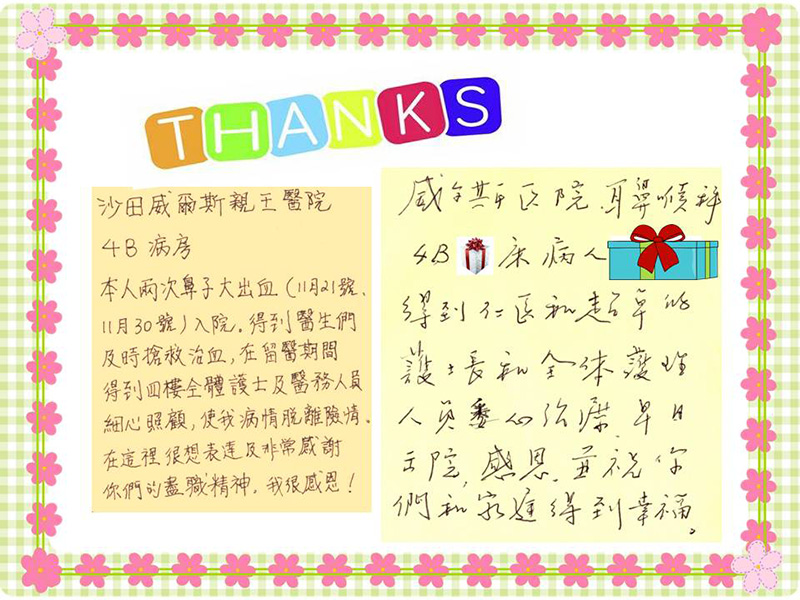 THANKS
沙田威爾斯親王醫院
4B 病房
本人兩次鼻子大出血(11月21號、
11月30號)入院。得到醫生們
及時搶救治血,在留醫期間
得到四樓全體護士及醫務人員
細心照顧,使我病情脫離險情。
在這裡很想表達及非常感謝
你們的盡職精神。我很感恩!
威尔斯医院 耳鼻喉科
4B 床病人
得到仁医和超卓的
護士長和全体護理
人員悉心治療,早日
出院,感恩,並祝你
們和家庭得到幸福。